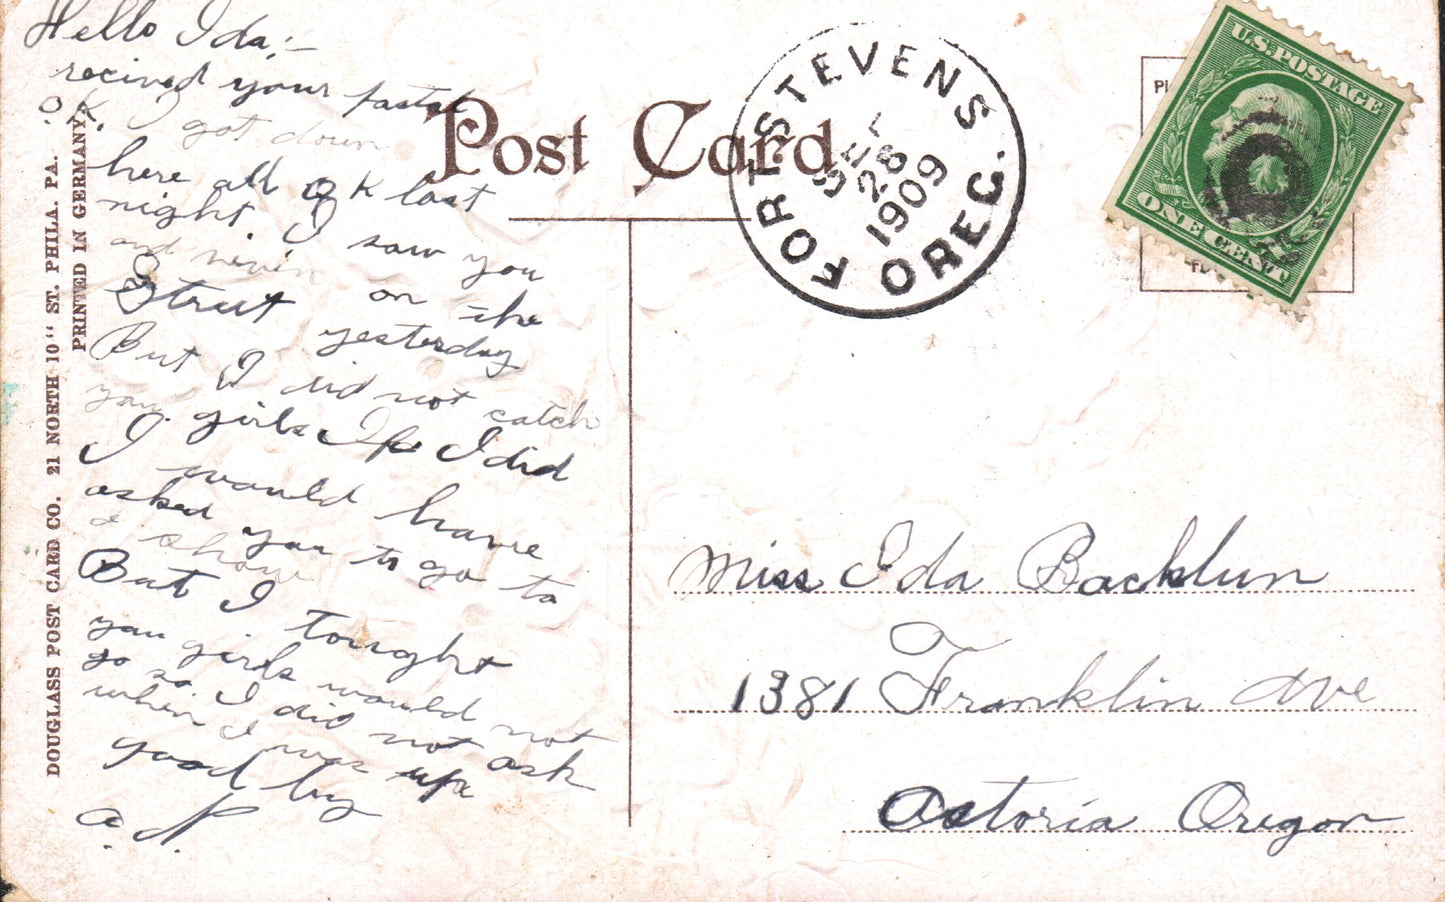 Hello Ida:-
recived your postal
O.K. I got down
here all O K last
night. I saw you
and
on the
Street yesterday
But I did not catch
you girls If I did
I would have
asked you to go to
a show
But I tought
you girls would not
go so. I did not ask
when I was up
good by
a. N.
DOUGLASS POST CARD CO. 21 NORTH 10" ST. PHILA. PA.
PRINTED IN GERMANY.
Post Card
FORT STEVENS
OREG.
SEP
28
1909
U.S. POSTAGE
ONE CENT
Miss Ida Backlun
1381 Franklin Ave
Astoria Oregon